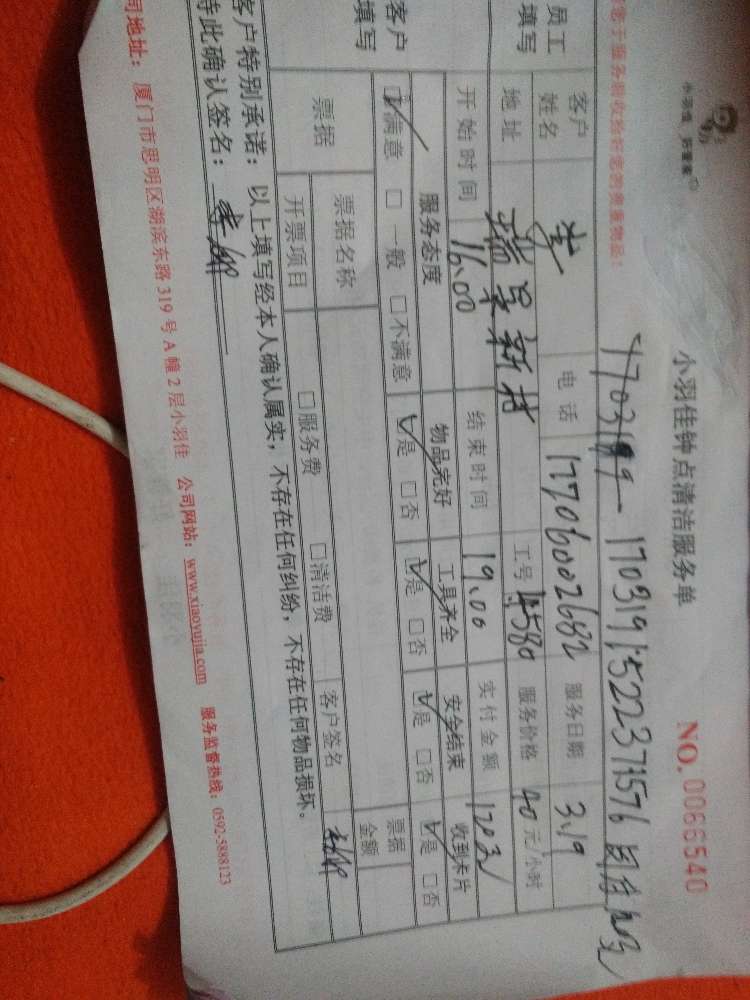 小羽佳 家政
小羽佳钟点清洁服务单 NO. 0066540
1703191522371576
员工填写 客户姓名 李 电话 17706002682 服务日期 3.19
地址 瑞景新村 工号 4580 服务价格 40 元/小时
开始时间 16.00 结束时间 19.00 实付金额 120元
客户填写 服务态度 物品完好 工具齐全 安全结束 收到卡片
☑满意 □一般 □不满意 ☑是 □否 ☑是 □否 ☑是 □否 ☑是 □否
票据 票据名称 票据金额
开票项目 □服务费 □清洁费 客户签名
客户特别承诺：以上填写经本人确认属实，不存在任何纠纷，不存在任何物品损坏。
特此确认签名：
司地址：厦门市思明区湖滨东路 319 号 A 幢 2 层小羽佳 公司网站：www.xiaoyujia.com 服务监督热线：0592-5888123